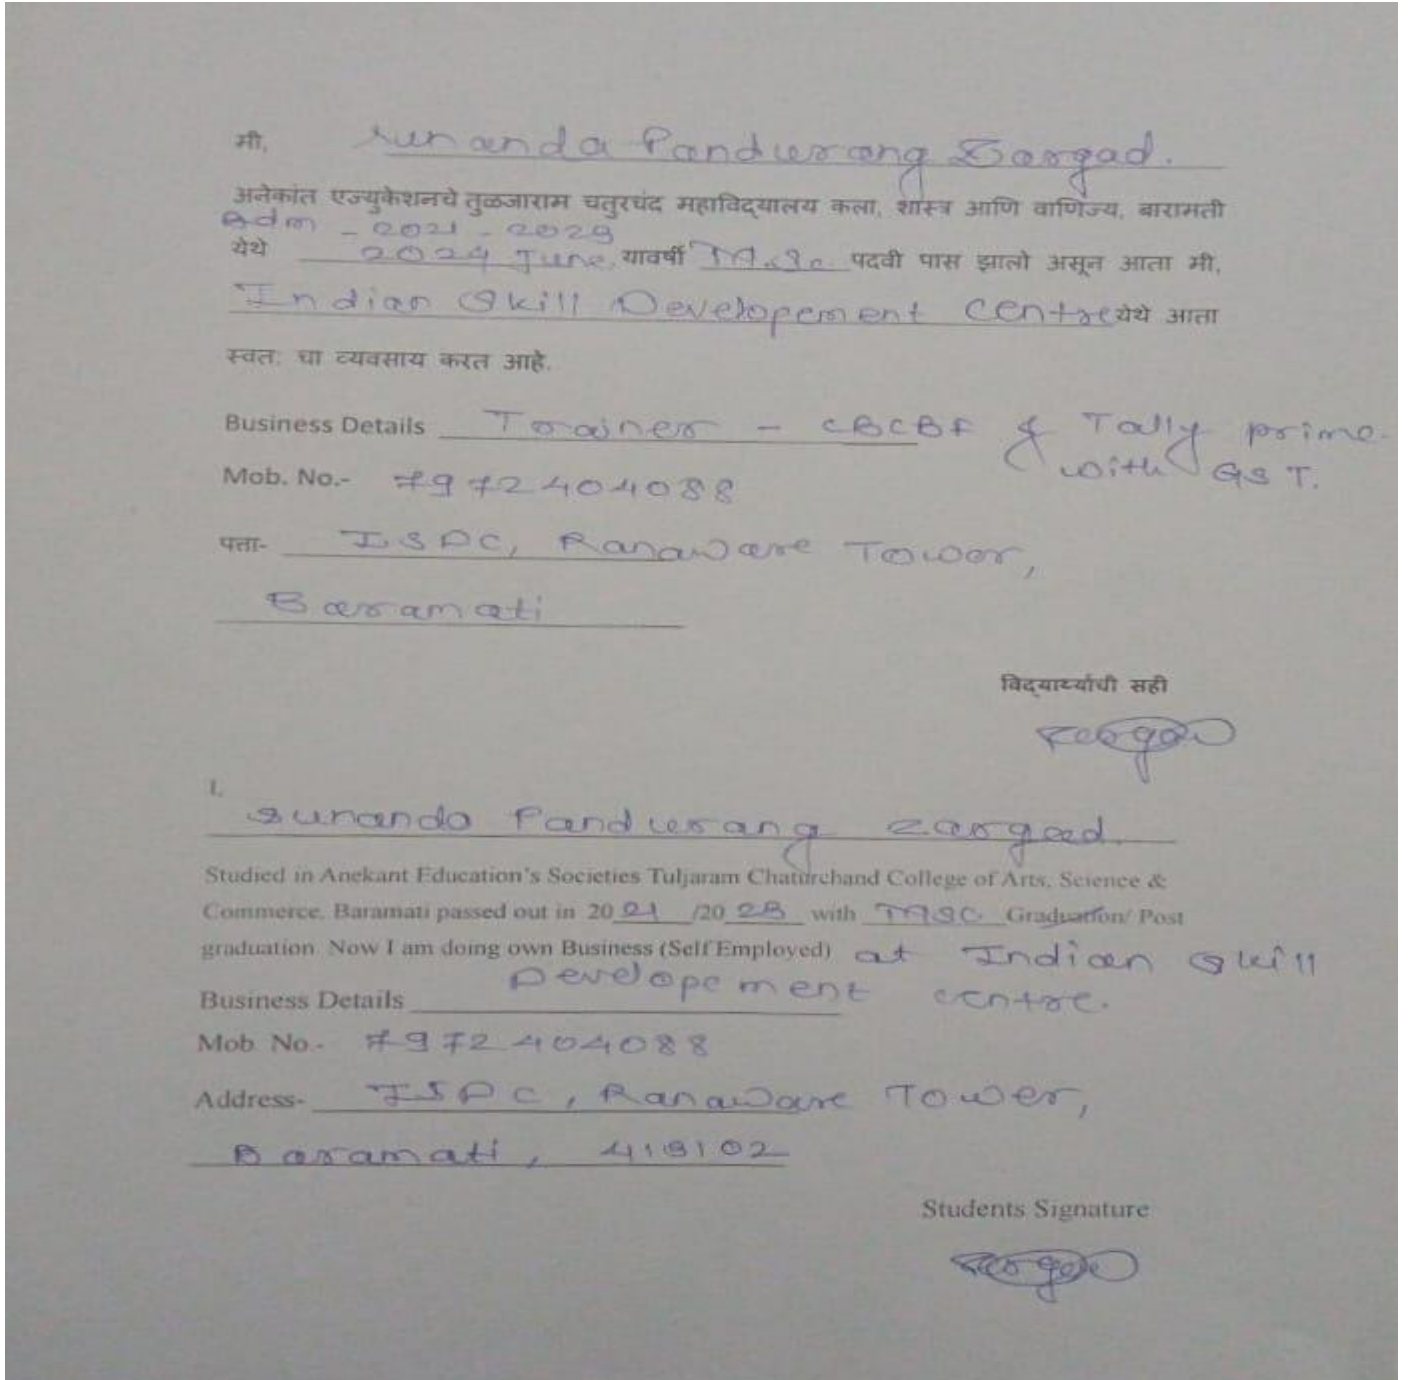 मी, Sunanda Pandurang Zargad.
अनेकांत एज्युकेशनचे तुळजाराम चतुरचंद महाविद्यालय कला, शास्त्र आणि वाणिज्य, बारामती
Adm - 2021 - 2023
येथे 2024 June, यावर्षी M.Sc. पदवी पास झालो असून आता मी,
Indian Skill Developement Centre येथे आता
स्वतः चा व्यवसाय करत आहे.
Business Details Trainer - CBCBF & Tally prime
with GST.
Mob. No.- 7972404088
पत्ता- ISDC, Ranaware Tower,
Baramati
विद्यार्थ्याची सही
I,
Sunanda Pandurang Zargad
Studied in Anekant Education's Societies Tuljaram Chaturchand College of Arts, Science &
Commerce, Baramati passed out in 20 21 /20 23 with MSC Graduation/ Post
graduation. Now I am doing own Business (Self Employed) at Indian Skill
Developement centre.
Business Details
Mob. No.- 7972404088
Address- ISDC, Ranaware Tower,
Baramati, 413102
Students Signature